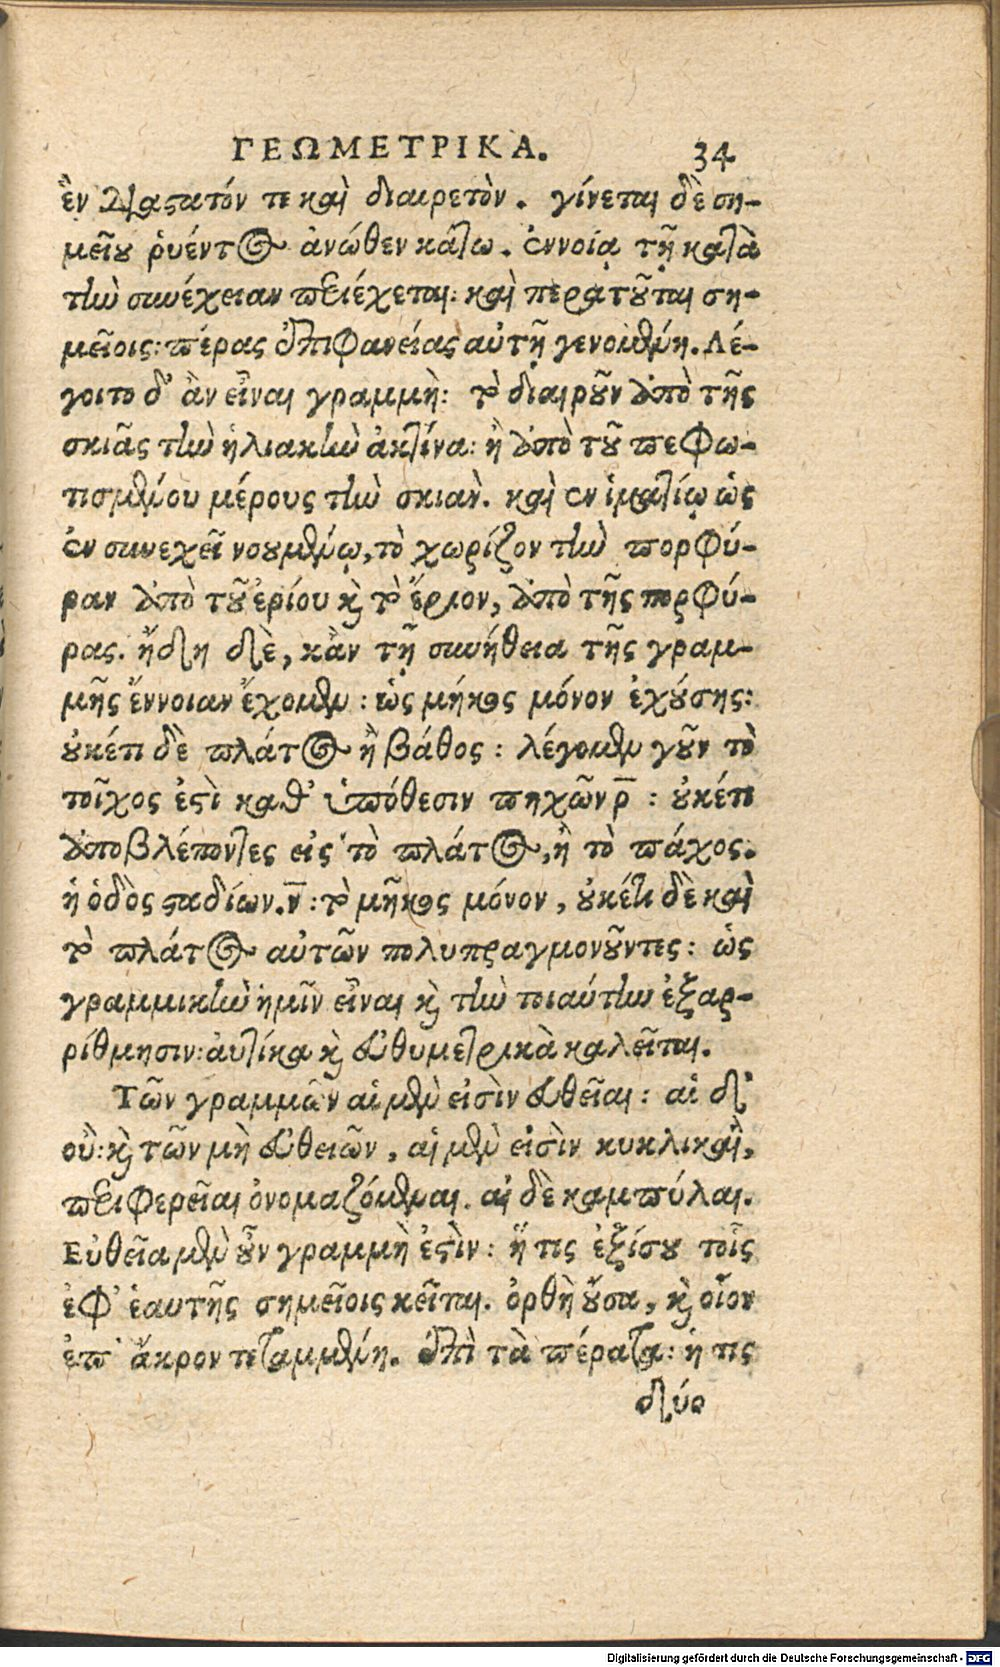 ΓΕΩΜΕΤΡΙΚΑ. 34
ἓν διαστατόν τε καὶ διαιρετὸν. γίνεται δὲ ση-
μείου ῥυέντος ἀνώθεν κάτω. ἐννοίᾳ τῇ κατὰ
τὴν συνέχειαν περιέχεται: καὶ περατοῦται ση-
μείοις: πέρας ἐπιφανείας αὐτὴ γενομένη. Λέ-
γοιτο δ' ἂν εἶναι γραμμὴ: τὸ διαιροῦν ἀπὸ τῆς
σκιᾶς τὴν ἡλιακὴν ἀκτίνα: ἢ ἀπὸ τοῦ πεφω-
τισμένου μέρους τὴν σκιαν. καὶ ἐν ἱματίῳ ὡς
ἐν συνεχεῖ νοουμένῳ, τὸ χωρίζον τὴν πορφύ-
ραν ἀπὸ τοῦ ἐρίου καὶ τὸ ἔριον, ἀπὸ τῆς πορφύ-
ρας. ἤδη δὲ, κἂν τῇ συνήθεια τῆς γραμ-
μῆς ἔννοιαν ἔχομεν: ὡς μῆκος μόνον ἐχούσης:
οὐκέτι δὲ πλάτος ἢ βάθος: λέγομεν γοῦν τὸ
τοῖχος ἐστὶ καθ' ὑπόθεσιν πηχῶν ρ̅: οὐκέτι
ἀποβλέποντες εἰς τὸ πλάτος, ἢ τὸ πάχος.
ἡ ὁδὸς σταδίων. ν̅: τὸ μῆκος μόνον, οὐκέτι δὲ καὶ
τὸ πλάτος αὐτῶν πολυπραγμονοῦντες: ὡς
γραμμικὴν ἡμῖν εἶναι καὶ τὴν τοιαύτην ἐξαρ-
ρίθμησιν: αὐτίκα καὶ εὐθυμετρικὰ καλεῖται.
Τῶν γραμμῶν αἱ μὲν εἰσὶν εὐθεῖαι: αἱ δ'
οὒ: καὶ τῶν μὴ εὐθειῶν, αἱ μὲν εἰσὶν κυκλικαὶ,
περιφερεῖαι ὀνομαζόμεναι. αἱ δὲ καμπύλαι.
Εὐθεῖα μὲν οὖν γραμμὴ ἐστὶν: ἥ τις ἐξίσου τοῖς
ἐφ' ἑαυτῆς σημείοις κεῖται. ὀρθὴ οὖσα, καὶ οἷον
ἐπ' ἄκρον τεταμμένη. ἐπὶ τὰ πέρατα: ἥ τις
δύο
Digitalisierung gefördert durch die Deutsche Forschungsgemeinschaft - DFG